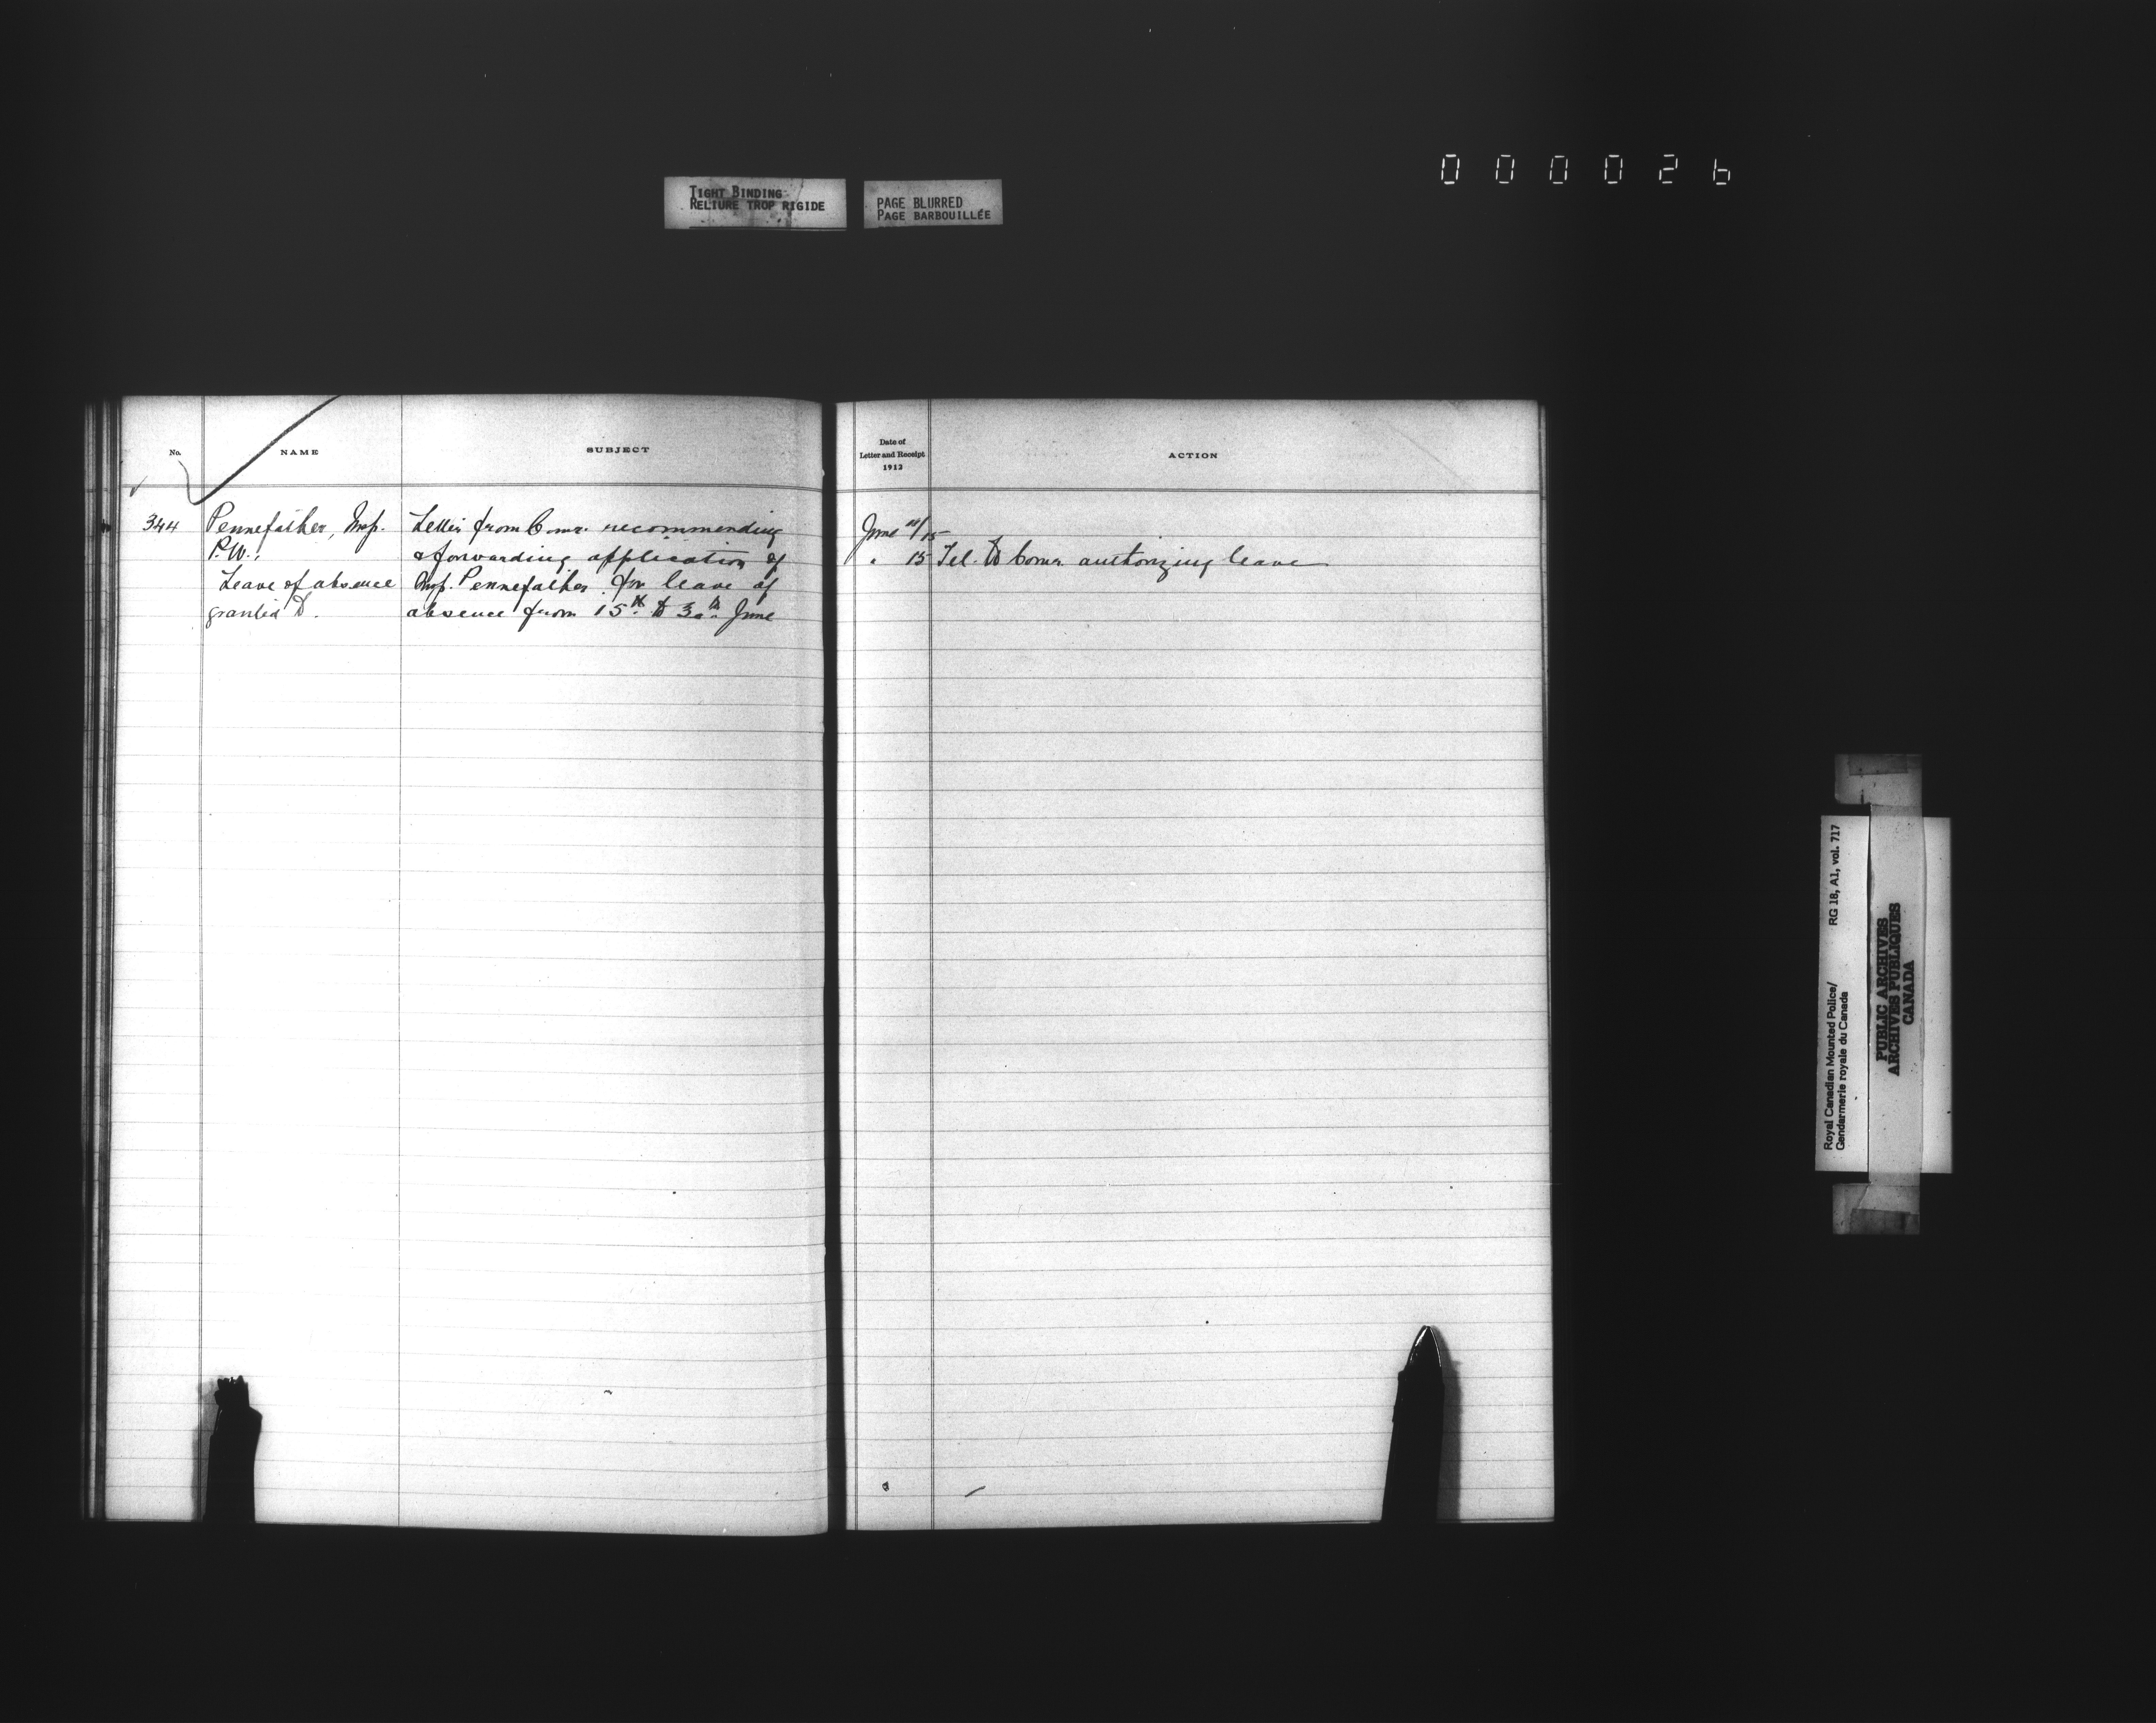 0 0 0 0 2 6
TIGHT BINDING
RELIURE TROP RIGIDE
PAGE BLURRED
PAGE BARBOUILLÉE
No.
NAME
SUBJECT
344
Pennefather, Insp.
P.W.,
Leave of absence
granted to.
Letter from Comr. recommending
& forwarding application of
Insp. Pennefather for leave of
absence from 15th to 30th June
Date of
Letter and Receipt
1913
ACTION
June /15
" 15 Tel. to Comr. authorizing leave
Royal Canadian Mounted Police/
Gendarmerie royale du Canada
RG 18, A1, vol. 717
PUBLIC ARCHIVES
ARCHIVES PUBLIQUES
CANADA